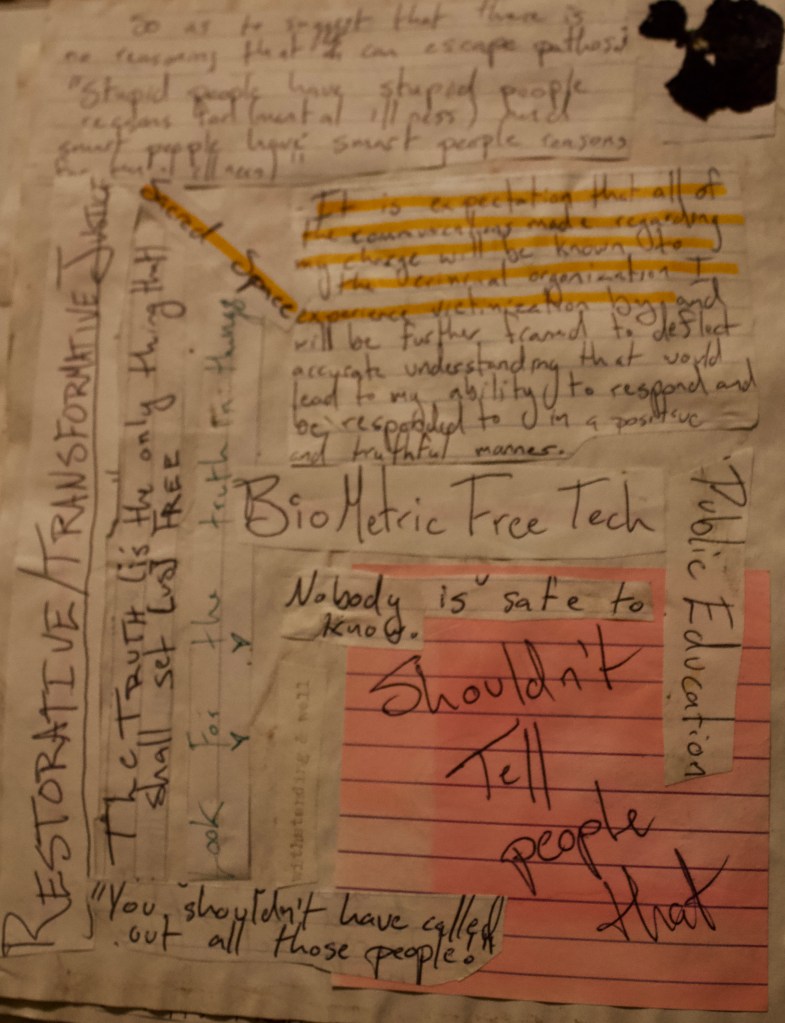 So as to suggest that there is
no reasoning that I can escape pathos:
"Stupid people have stupid people
reasons for (mental illness) and
smart people have smart people reasons
for mental illness)
Sacred Space
It is expectation that all of
the communications made regarding
my charge will be known to
the criminal organization I
experience victimization by, and
will be further framed to deflect
accurate understanding that would
lead to my ability to respond and
be responded to in a positive
and truthful manner.
RESTORATIVE/TRANSFORMATIVE JUSTICE
The TRUTH (is the only thing that)
shall set (us) FREE
Look for the truth in things
BioMetric Free Tech
Public Education
Nobody is safe to
know.
Shouldn't
Tell
people
that
withstanding & well
"You shouldn't have called
out all those people."